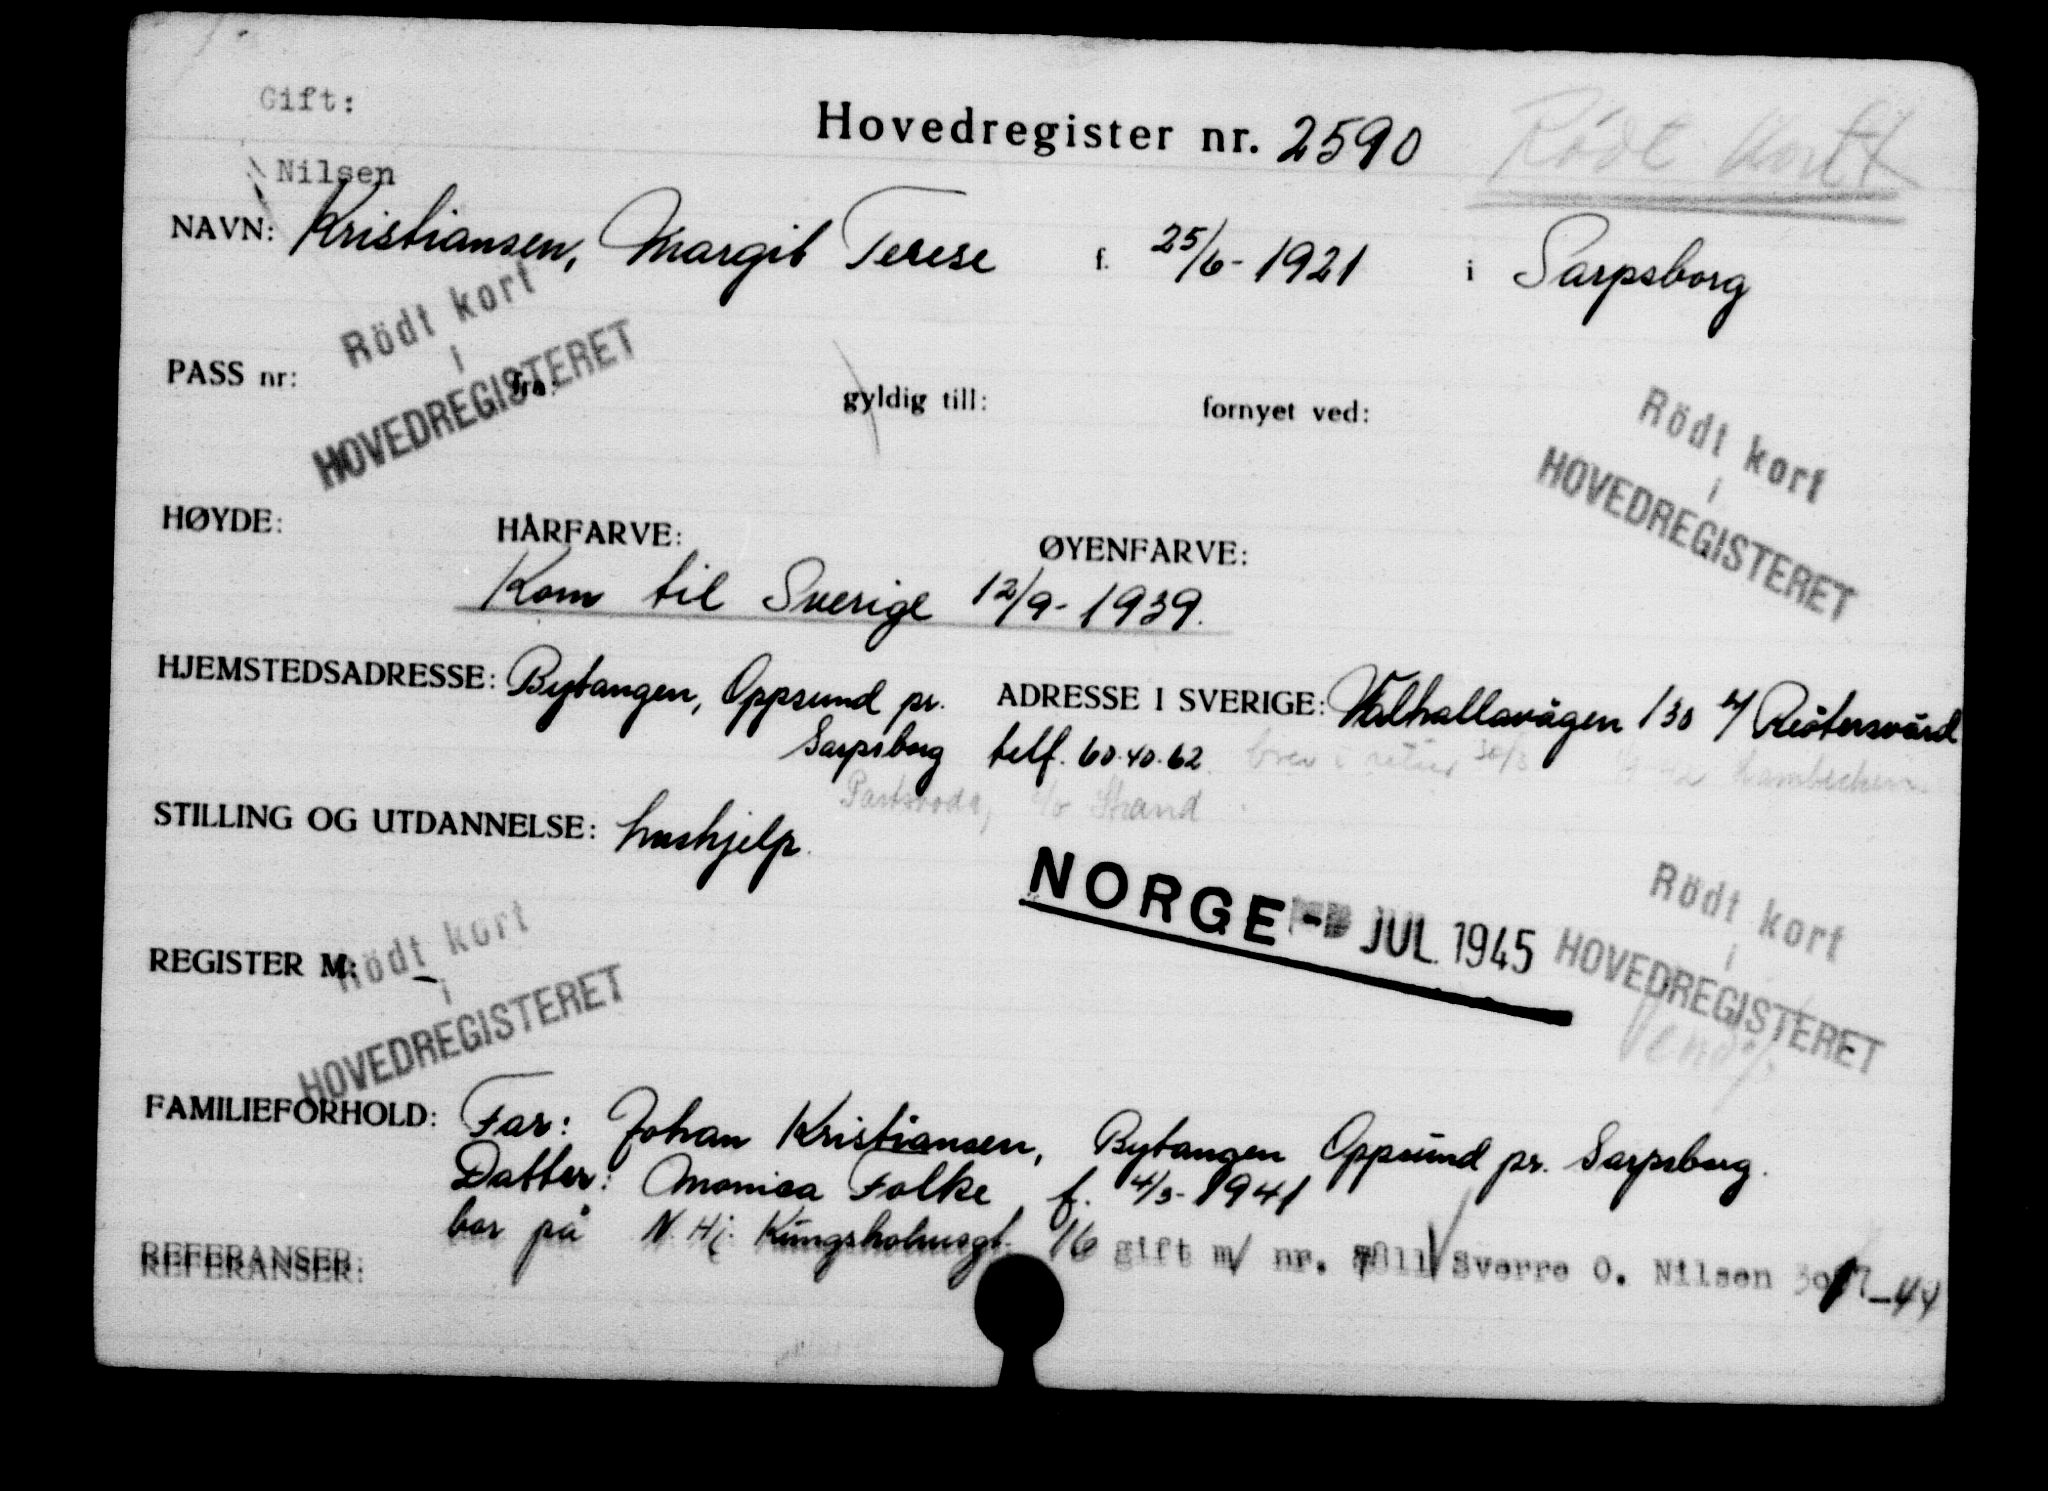 Gift:
Hovedregister nr. 2590
Rödt kort
Nilsen
NAVN: Kristiansen, Margit Terese f. 25/6-1921 i Sarpsborg
Rödt kort
i
HOVEDREGISTERET
PASS nr: fra: gyldig till: fornyet ved:
Rödt kort
i
HOVEDREGISTERET
HØYDE: HÅRFARVE: ØYENFARVE:
Kom til Sverige 12/9-1939.
HJEMSTEDSADRESSE: Bytangen, Oppsund pr. ADRESSE I SVERIGE: Valhallavägen 130
Sarpsborg telf. 60.40.62. brev i retur 30/3
Strand
STILLING OG UTDANNELSE: hushjelp.
NORGE JUL. 1945
Rödt kort
i
HOVEDREGISTERET
REGISTER M: –
Rödt kort
i
HOVEDREGISTERET
FAMILIEFORHOLD: Far: Johan Kristiansen, Bytangen Oppsund pr. Sarpsborg.
Datter: Monica Folke f. 4/3-1941
bor på N. Hj. Kungsholmsgt. 16 gift m/ nr. Sverre O. Nilsen
REFERANSER: